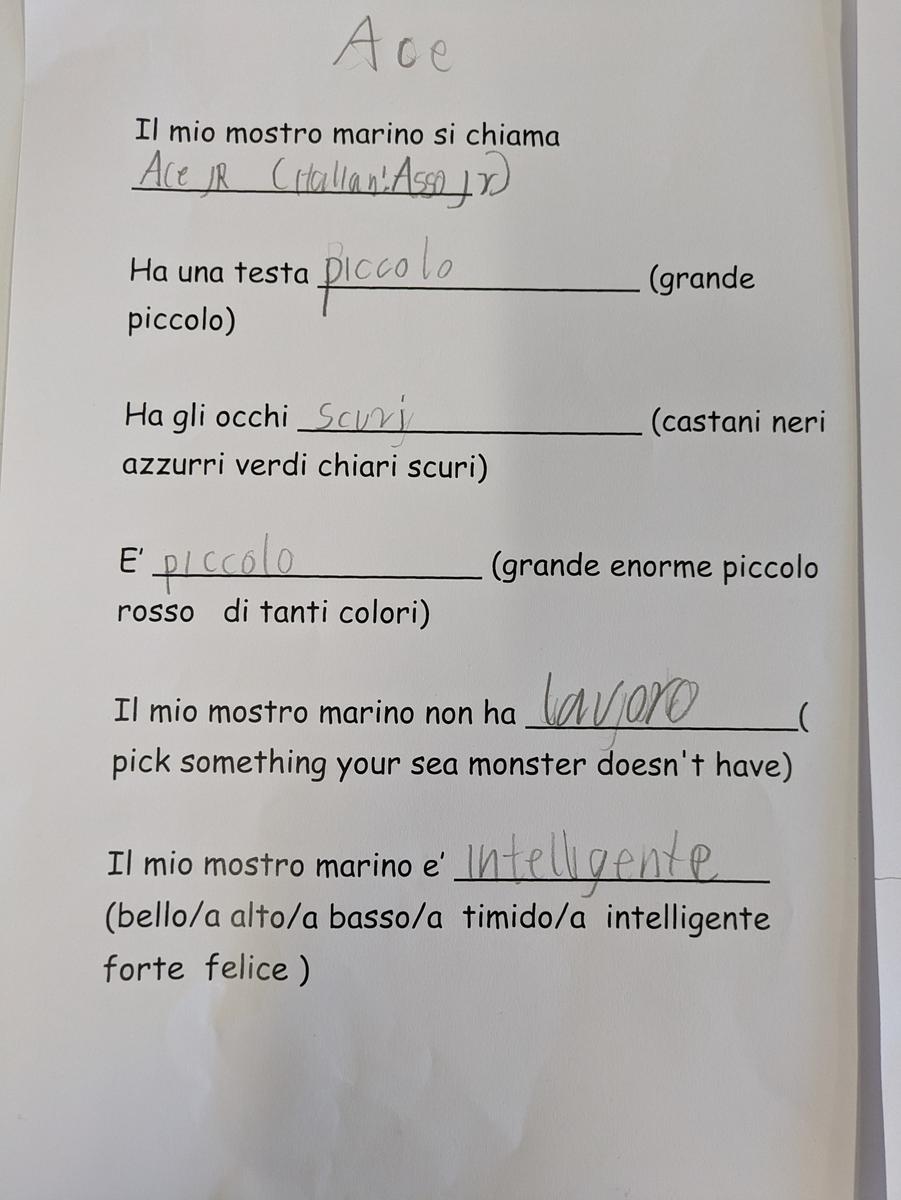 Ace
Il mio mostro marino si chiama
Ace JR (Italian: Asso jr)
Ha una testa piccolo (grande
piccolo)
Ha gli occhi scuri (castani neri
azzurri verdi chiari scuri)
E' piccolo (grande enorme piccolo
rosso di tanti colori)
Il mio mostro marino non ha lavoro (
pick something your sea monster doesn't have)
Il mio mostro marino e' intelligente
(bello/a alto/a basso/a timido/a intelligente
forte felice )